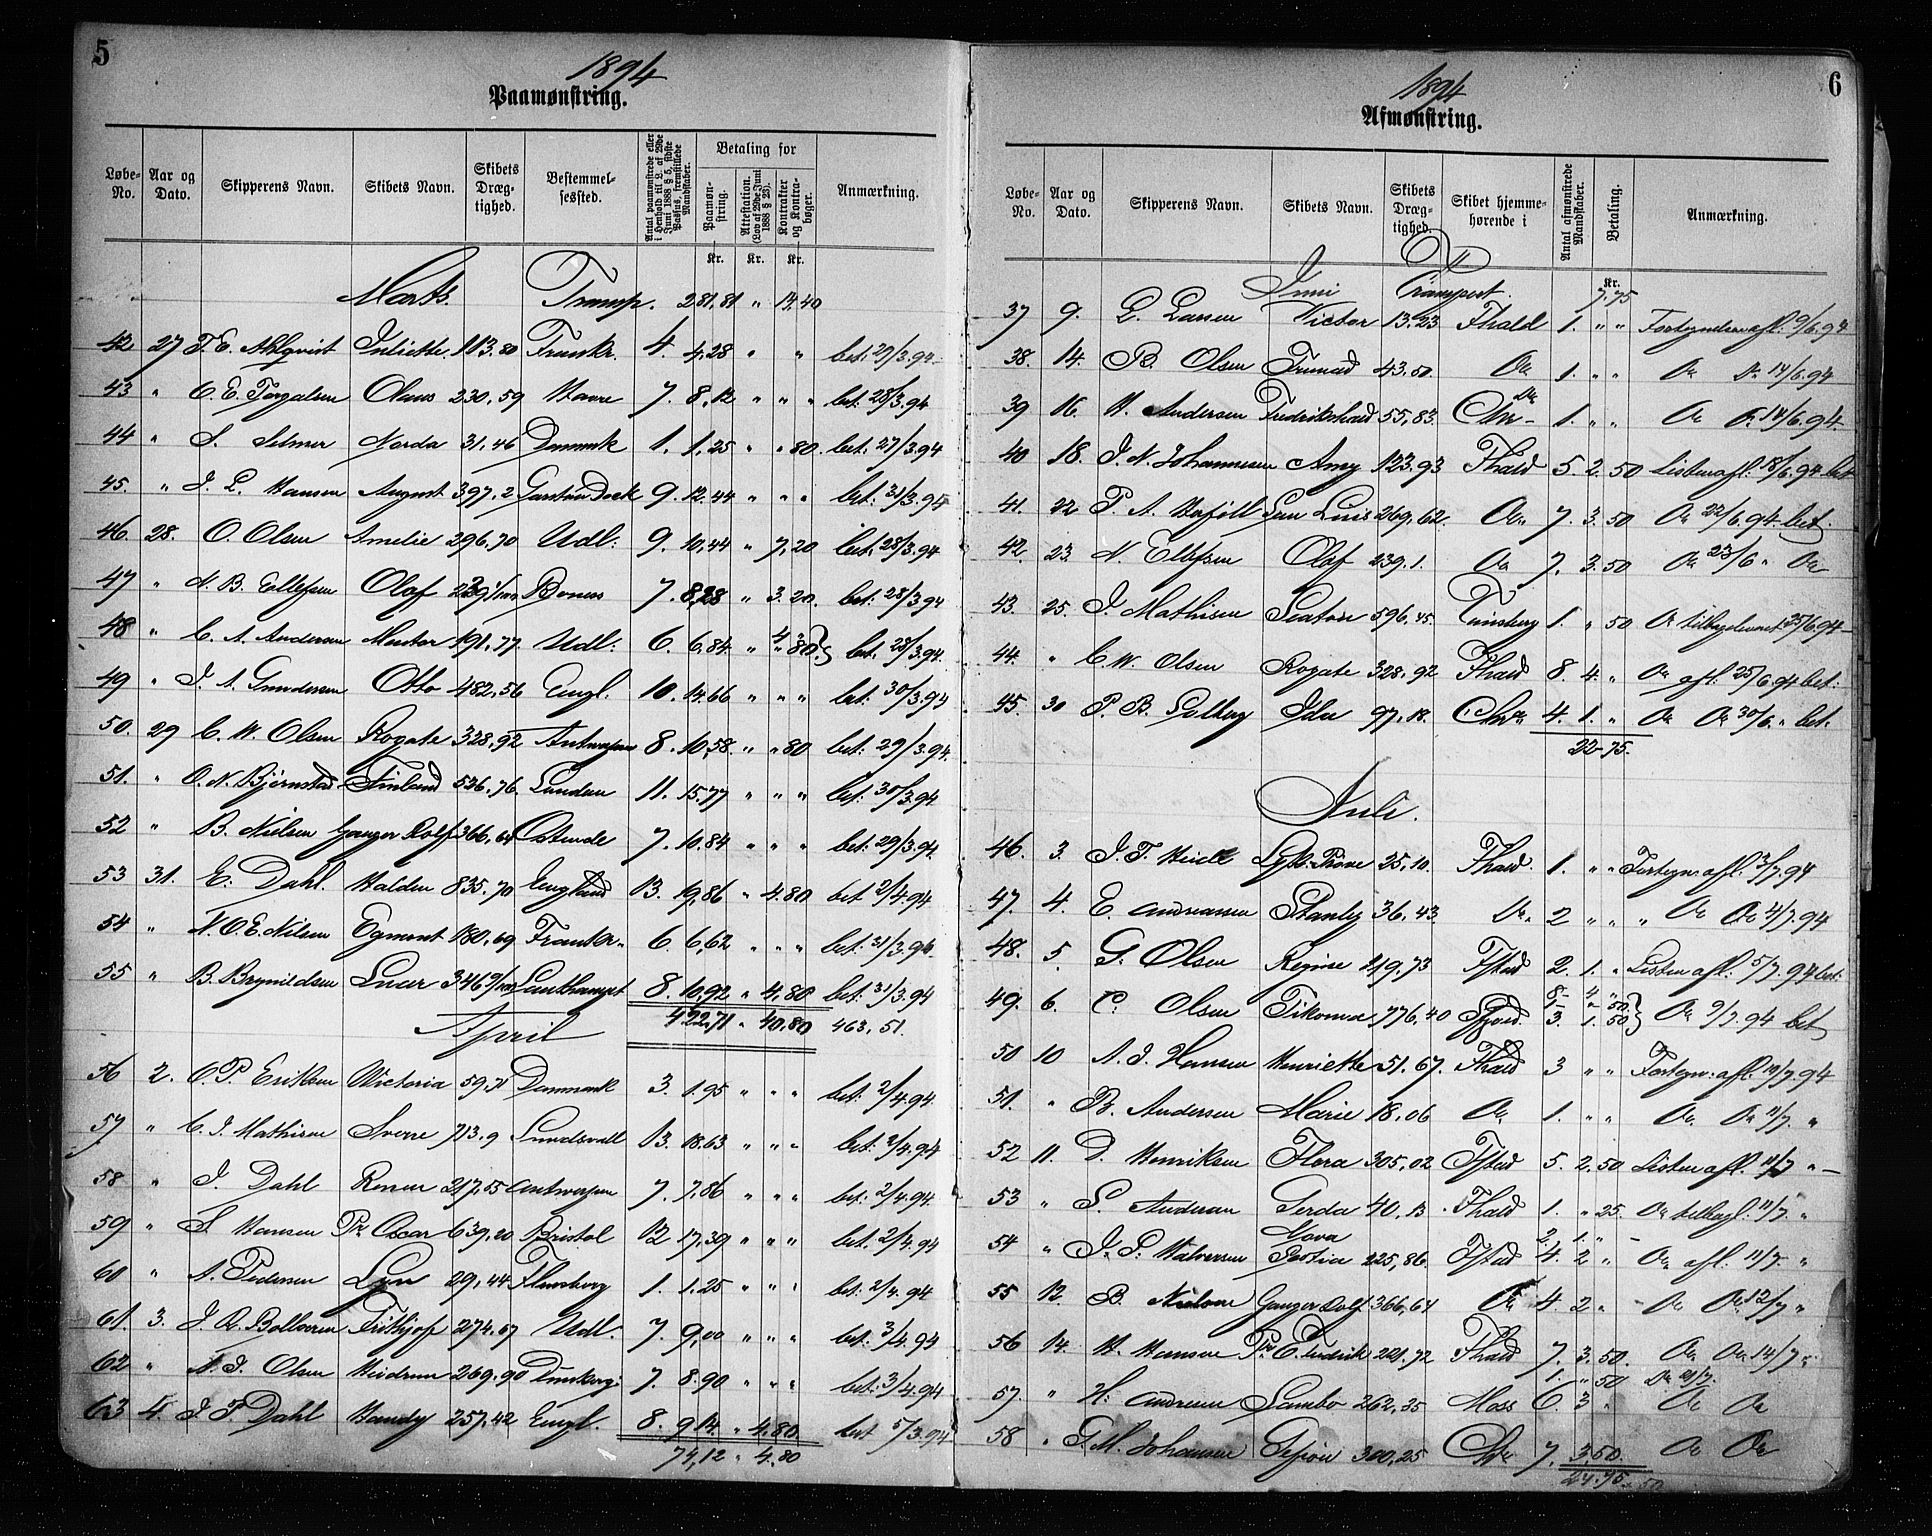 5
1894
Paamønstring.
Løbe-No. Aar og Dato. Skipperens Navn. Skibets Navn. Skibets Dræg-tighed. Bestemmel-sessted. Antal paamønstrede eller i Henhold til L. af 29de Juni 1888 § 5, sidste Passus, fremstillede Mandskaber. Betaling for Paamøn-string. Attestation. (Lov af 29de Juni 1888 § 23). Kontrakter og Kontra-bøger. Anmærkning.
Kr. Kr. Kr.
Marts. Transp. 281.81 " 14.40
42 27 Juliette 113.80 Frankr. 4. 4.28 " " bet. 29/3.94
43 " C. E. Torgalsen Olaus 230.59 Havre 7. 8.12 " " " bet. 28/3.94
44 " S. Selmer Norda 31.46 Danmark 1. 1.25 " " 80. bet. 27/3.94
45. " J. L. Hansen August 397.2 Garston Dock 9. 12.44 " " " bet. 31/3.94
46. 28. O. Olsen Amelie 296.70 Udl. 9. 10.44 " 7.20 bet. 28/3.94
47 " N. B. Ellefsen Olaf 239 1/100 7. 8.28 " 3.20. bet. 28/3.94
48 " C. A. Andersen Mentor 191.77 Udl. 6. 6.84 " 4 " 80 bet. 28/3.94.
49 " J. A. Gundersen Otto 482.56 Engl. 10. 14.66 " " " bet. 30/3.94
50. 29 C. W. Olsen Rogate 328.92 Antwerpen 8. 10.58. " " 80 bet. 29/3.94.
51. " O. N. Bjørnstad Finland 536.76. London 11. 15.77 " " " bet. 30/3.94
52 " B. Nielsen Ganger Rolf 366.64 Ostende 7. 10.84 " " " bet. 29/3.94.
53 31. E. Dahl. Halden 835.70 England 13. 19.86 " 4.80 bet 2/4.94
54 " N. O. E. Nilsen Egmont 180.69 Frankr. 6. 6.62 " " " bet. 31/3.94
55 " B. Brynildsen Lucer 346 8. 10.92 " 4.80 bet. 31/3.94
422.71 " 40.80 463.51.
April
56 2. O. P. Eriksen Victoria 59.71 Danmark 3. 1.95 " " " bet. 2/4.94.
57 " C. J. Mathisen Sverre 713.9 Sundsvall 13. 18.63 " " " bet. 2/4.94
58 " J. Dahl Renner 217.55 Antwerpen 7. 7.86 " " " bet. 2/4.94.
59 " S. Hansen Pr. Oscar 639.20 Bristol 12 17.39 " " " bet. 2/4.94
60 " A. Pedersen Lyn 29.44 Flensborg 1. 1.25 " " " bet. 2/4.94
61. 3. Frithjof 274.67 Udl. 7. 9.00 " " " bet. 3/4.94
62 " N. J. Olsen Heidrun 269.90 7. 8.90 " " " bet. 3/4.94
63 4. J. F. Dahl Handy 257.42 Engl. 8. 9.14. " 4.80. bet 5/3.94
74,12 " 4.80
6
1894
Afmønstring.
Løbe-No. Aar og Dato. Skipperens Navn. Skibets Navn. Skibets Dræg-tighed. Skibet hjemme-hørende i Antal afmønstrede Mandskaber. Betaling. Anmærkning.
Kr.
Juni Transport. 7.75
37 9. L. Larsen Victor 13.23 Fhald 1. " " afl. 9/6.94
38. 14. B. Olsen 43.50. Do 1. " " Do Do 14/6.94
39 16. H. Andersen Fredrikshald 55.83. Chr. 1. " " Do Do 14/6.94.
40 18. J. N. Johannesen Amy 123.93 Fhald 5. 2.50 Listen afl. 18/6.94 bet
41. 22 P. A. San Luis 269.62. Do 7. 3.50 Do 22/6.94. bet.
42. 23. N. Ellefsen Olaf 239.1. Do 7. 3.50 Do 23/6 " Do
43. 25. J. Mathisen 596.45. Tønsberg 1. " 50 Do 25/6.94
44. " C. W. Olsen Rogate 328.92 Fhald 8. 4. " Do afl. 25/6.94 bet.
45. 30 P. B. Solberg Ida 97.18. Chra 4. 1. " Do Do 30/6. " bet.
22.75.
Juli.
46. 3. 25.10. Fhald. 1. " " Fortegn. afl. 3/7.94
47. 4. E. Andreassen Stanley 36.43 Do 2 " " Do Do 4/7.94
48. 5. G. Olsen Regine 219.73 Fstad 2. 1. " Listen afl. 5/7.94 bet.
49. 6. C. Olsen Tikoma 776.40 8 4 " 3. 1.50 Do 9/7.94 bet
50 10 A. J. Hansen Henriette 51.67. Fhald 3 " " Fortegn. afl. 10/7.94
51. " B. Andersen Marie 18.06 Do 1. " " Do Do 11/7. "
52 11. D. Henriksen Flora 305.02 Fstad 5. 2.50 Listen afl. 11/7 "
53 " S. Andersen Gerda 40.13 Fhald 1. " 25. Do 11/7. "
2. 1. "
54 " J. P. Halvorsen Nova Scotia 225.86 Fstad 4. 2 " Do afl. 11/7. "
55 12. B. Nielsen Ganger Rolf 366.64 Do 4. 2 " Do Do 12/7 "
56 14. H. Hansen 221.72 Fhald 7. 3.50. Do Do 14/7
1. " 50 Do 21/7.
57. " H. Andersen Sambo 262.35 Moss 6. 3 " Do Do
58 " G. M. Johansen Gefion 300.25 Chra 7. 3.50. Do Do
24.75